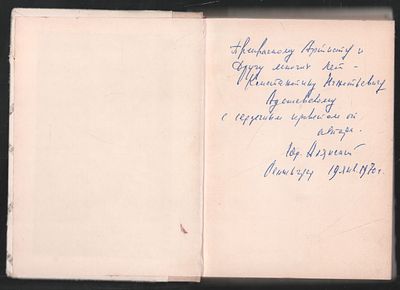 Прекрасному Артисту и
другу многих лет –
Константину Игнатьевичу
Адашевскому
с сердечным приветом от
автора.
Юр. Алянский
Ленинград 19 янв. 1970 г.